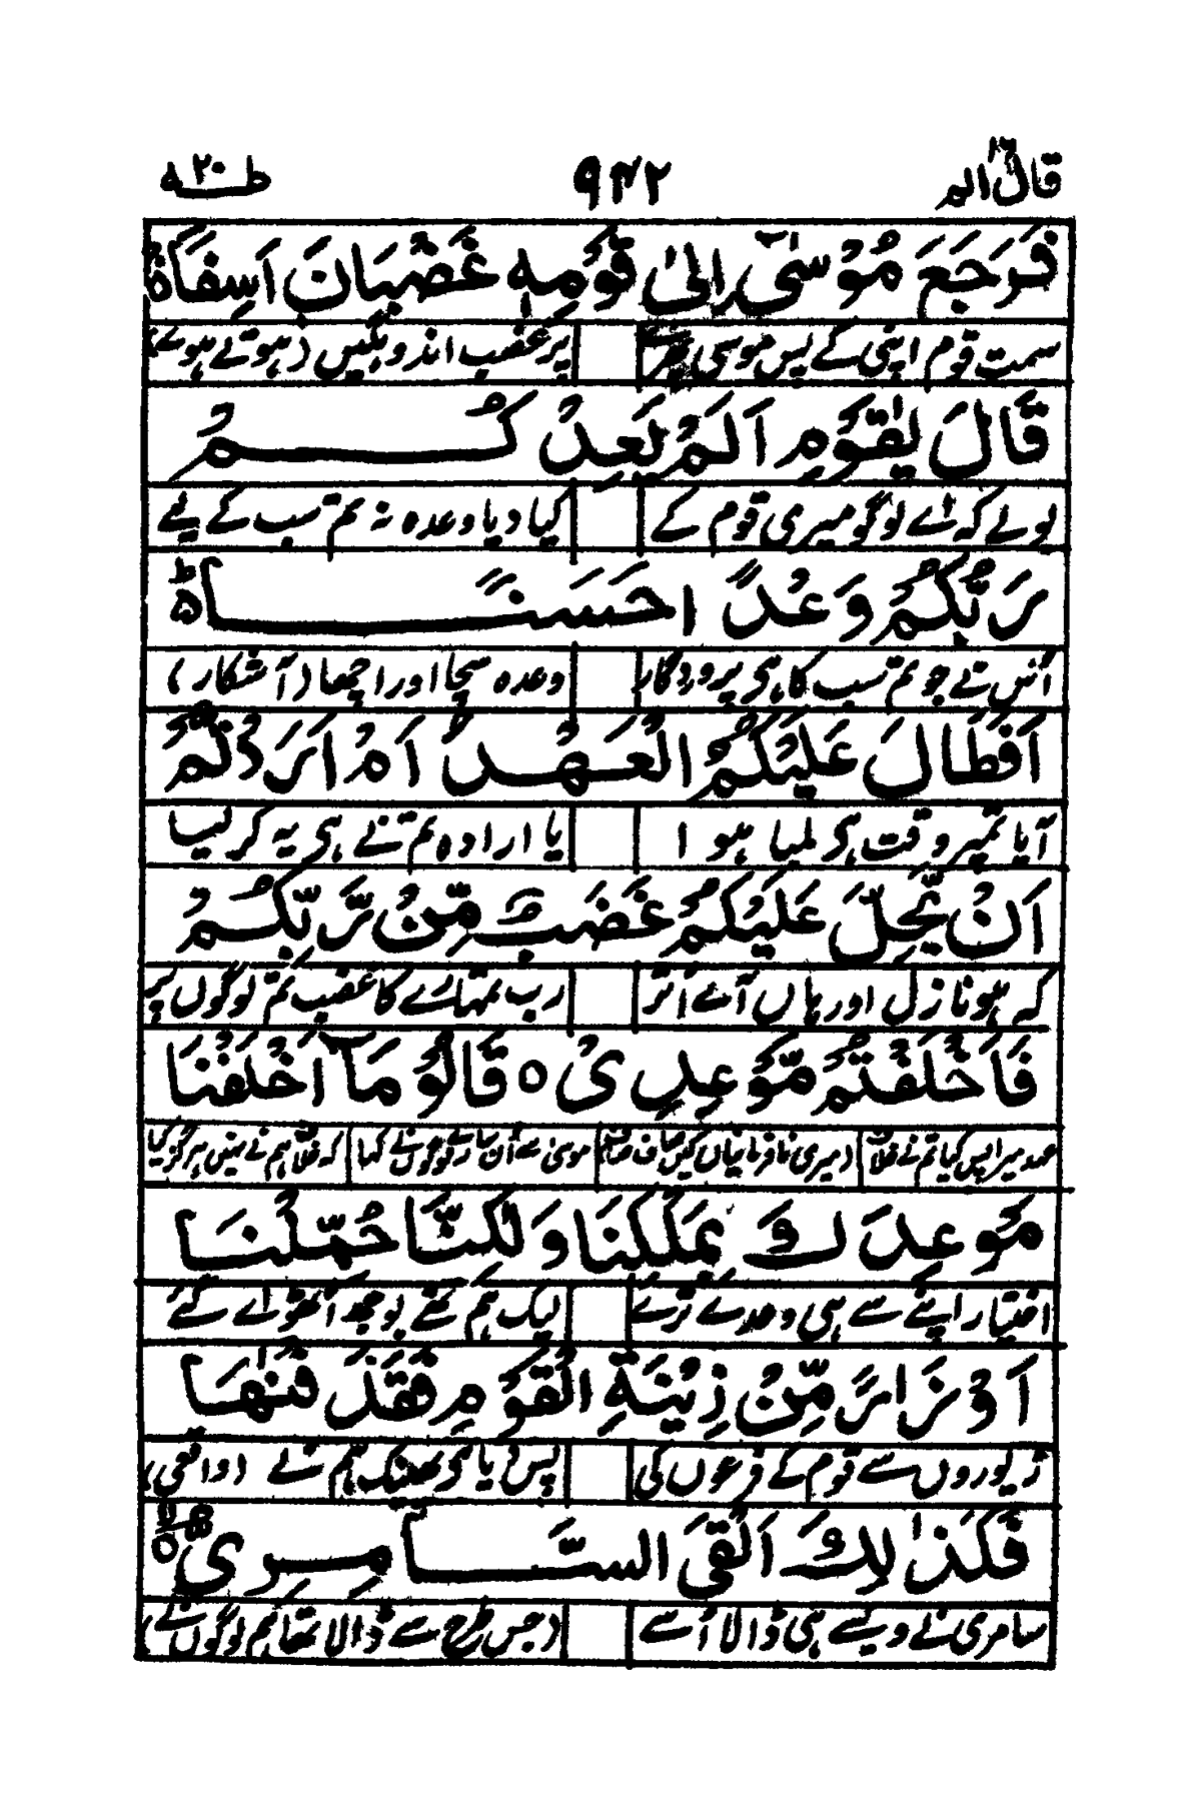 قال الم ١٦ ۹۴۲ طٰهٰ ۲۰
فَرَجَعَ مُوْسٰۤی اِلٰی قَوْمِهٖ غَضْبَانَ اَسِفًا ۚ۬
سمت قوم اپنی کے پس موسی پھرے پر غضب اندوہگیں (ہوتے ہوئے)
قَالَ یٰقَوْمِ اَلَمْ یَعِدْكُمْ
بولے کہ اے لوگو میری قوم کے کیا دیا وعدہ نہ تم سب کے لیے
رَبُّكُمْ وَعْدًا حَسَنًا ؕ۬
اُس نے جو تم سب کا ہی پروردگار وعدہ سچا اور اچھا (آشکار)
اَفَطَالَ عَلَیْكُمُ الْعَهْدُ اَمْ اَرَدْتُّمْ
آیا تمپر وقت ہی لمبا ہوا یا ارادہ تم نے ہی یہ کر لیا
اَنْ یَّحِلَّ عَلَیْكُمْ غَضَبٌ مِّنْ رَّبِّكُمْ
کہ ہو نازل اور ہاں آئے اُتر رب تمہارے کا غضب تم لوگوں پر
فَاَخْلَفْتُمْ مَّوْعِدِیْ ۝ قَالُوْا مَاۤ اَخْلَفْنَا
عہد میرا پس کیا تم نے خلاف (میری نافرمانیاں کیں صاف صاف) موسیٰ سے اُن سارے لوگوں نے کہا کہ خلاف ہم نے نہیں ہرگز کیا
مَوْعِدَكَ بِمَلْكِنَا وَلٰكِنَّا حُمِّلْنَاۤ
اختیار اپنے سے ہی وعدے ترے لیک ہم تھے بوجھ اٹھوائے گئے
اَوْزَارًا مِّنْ زِیْنَةِ الْقَوْمِ فَقَذَفْنٰهَا
زیوروں سے قوم کے فرعوں کی پس دیا کر پھینک ہم نے (واقعی)
فَكَذٰلِكَ اَلْقَی السَّامِرِیُّ ۝
سامری نے ویسے ہی ڈالا اُسے (جس طرح سے ڈالا تھا ہم لوگوں نے)